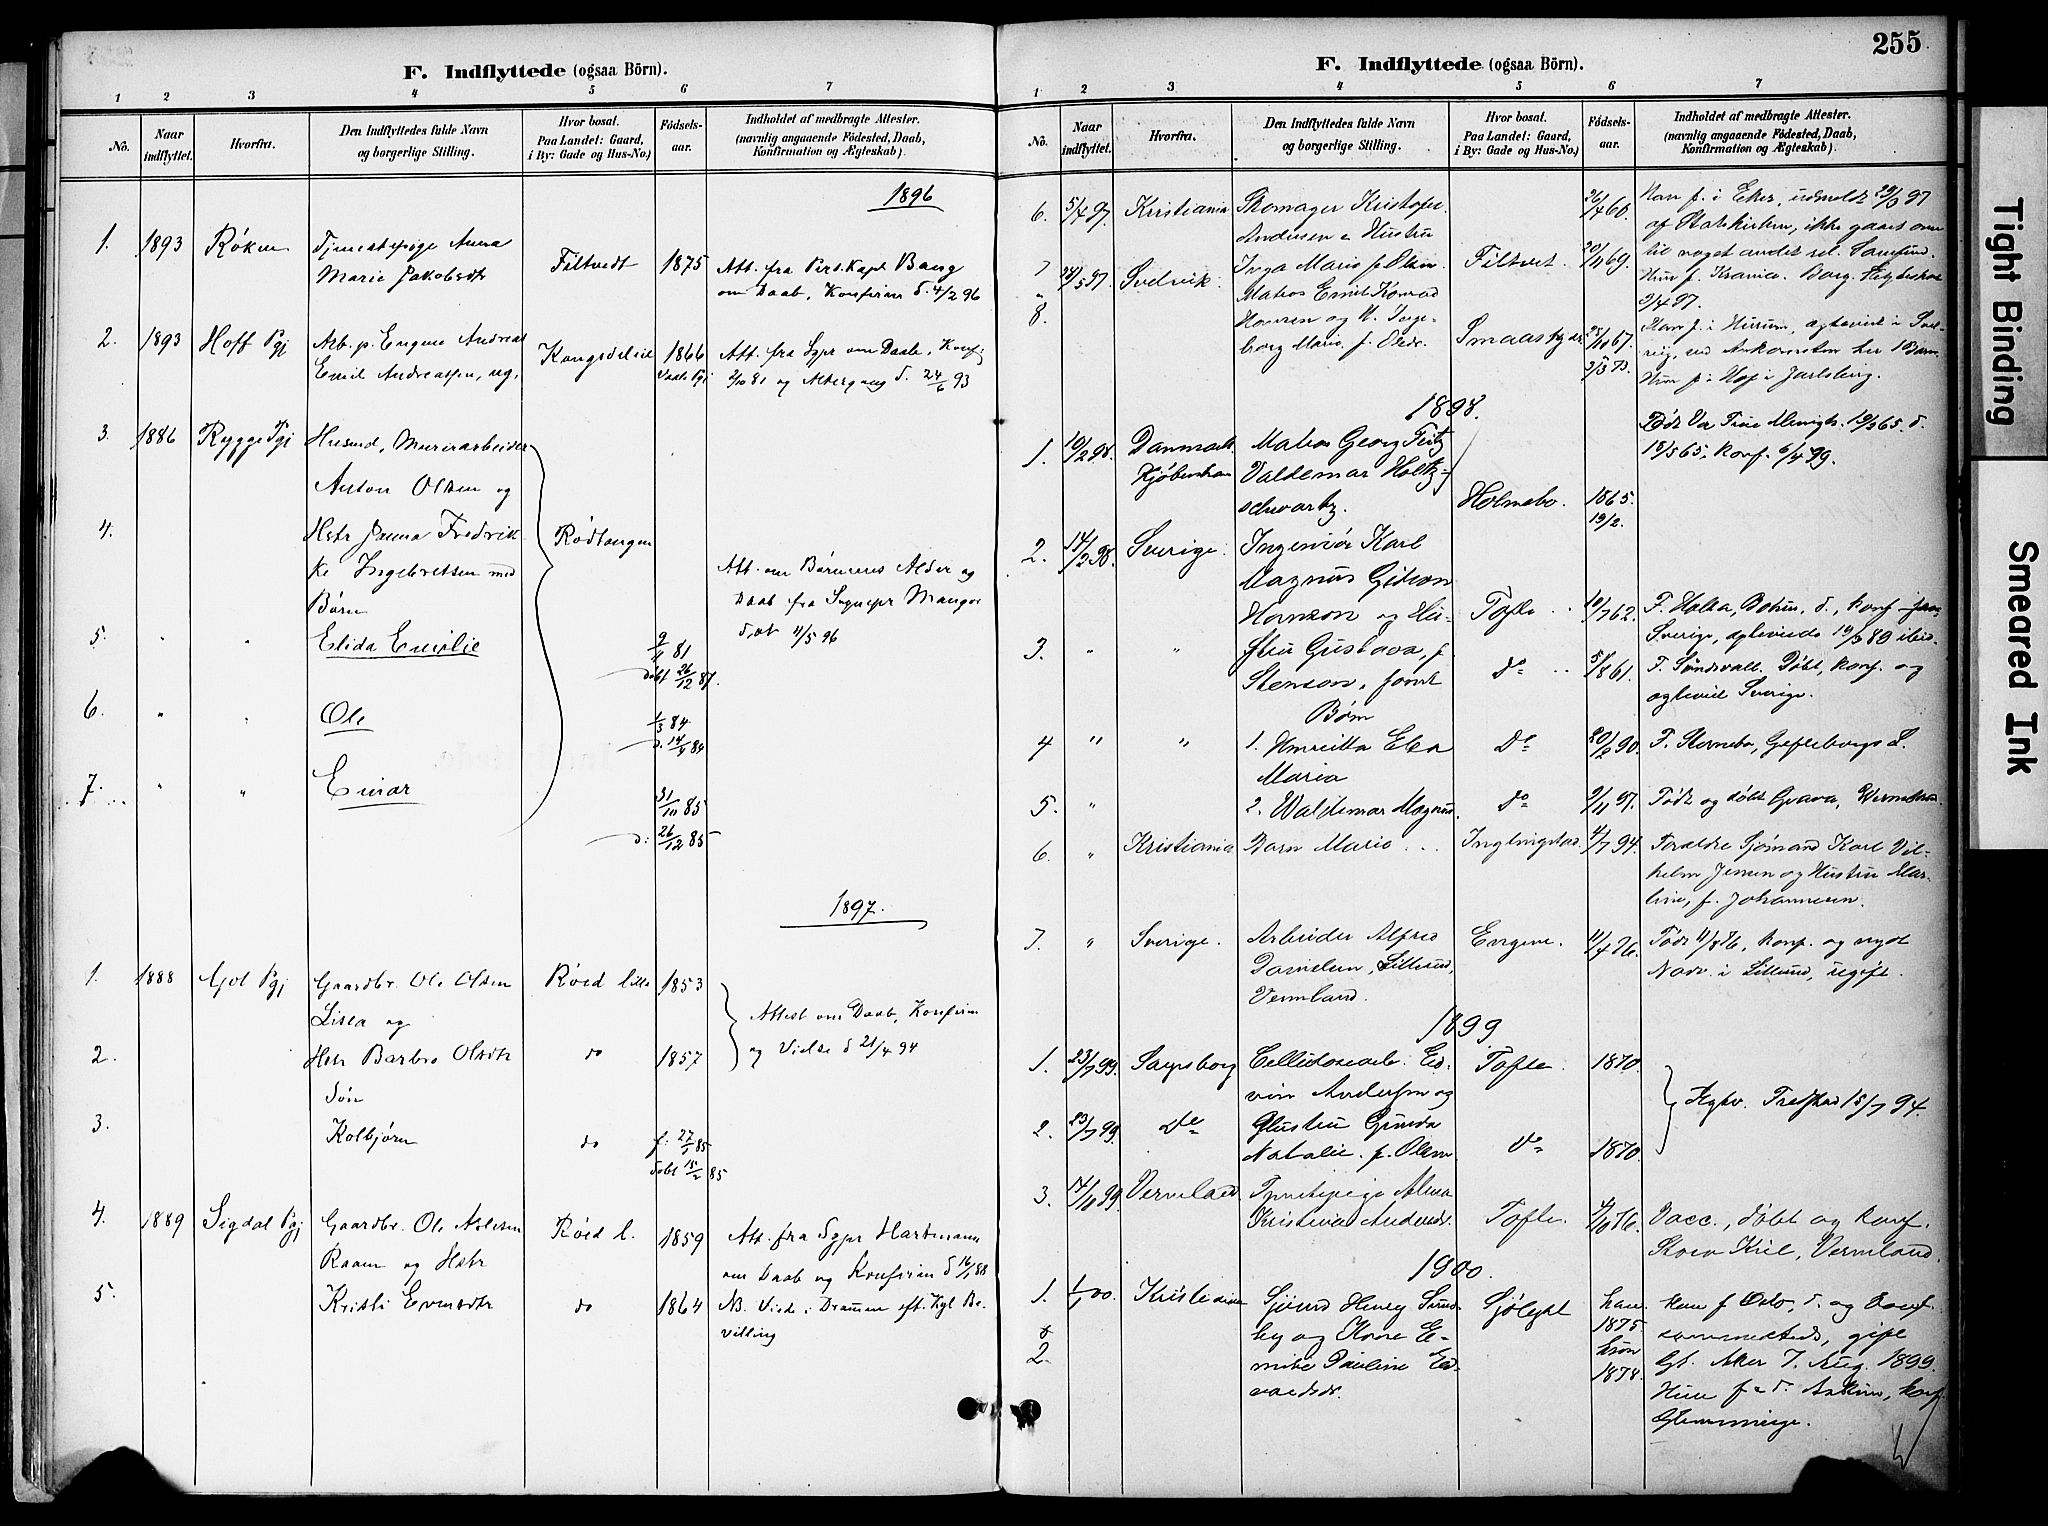 F. Indflyttede (ogsaa Börn).
1 2 3 4 5 6 7
No.
Naar indflyttet.
Hvorfra.
Den Indflyttedes fulde Navn
og borgerlige Stilling.
Hvor bosat.
Paa Landet: Gaard,
i By: Gade og Hus-No.)
Födsels-
aar.
Indholdet af medbragte Attester.
(navnlig angaaende Födested, Daab,
Konfirmation og Ægteskab).
1896
1. 1893 Røken Tjenestepige Anna
Marie Jakobsdtr Filtvedt 1875 Att. fra Pers. Kapl Bang
om Daab, Konfirm d. 4/2 96
2. 1893 Hoff Pgj Arb. p. Engene Andreas
Emil Andreassen, ug. Kongsdelene 1866 Att. fra Sgpr om Daab, Konf
2/10 81 og Altergang d. 24/6 93
3. 1886 Rygge Pgj Husmd, Murerarbeider
Anton Olsen og
4. Hstr Janna Fredrik
ke Ingebretsen med
Børn
Rødtangen
Att. om Børnenes Alder og
Daab fra Sognepr Mangor
dat 11/5 96
5. " " Elida Emilie 9/11 81
døbt 26/12 81.
6. " " Ole 1/3 84
d. 14/4 84
7. " " Einar 31/10 85
d: 26/12 85
1897.
1. 1888 Gol Pgj Gaardbr. Ole Olsen
Lisea og Røed lille 1853
Attest om Daab, Konfirm
og Vielse d 21/4 94
2. Hstr Barbro Olsdtr do 1857
Søn
3. Kolbjørn do f. 27/1 85
døbt 15/2 85
4. 1889 Sigdal Pgj Gaardbr. Ole Aslesen
Raaen og Hstr Røed l. 1859 Att. fra Sgpr Hartmann
om Daab og Konfirm d 16/1 88
5. Kristi Evensdtr do 1864 NB. Viede i Drammen eft. Kgl Be-
villing
255
F. Indflyttede (ogsaa Börn).
1 2 3 4 5 6 7
No.
Naar indflyttet.
Hvorfra.
Den Indflyttedes fulde Navn
og borgerlige Stilling.
Hvor bosat.
Paa Landet: Gaard,
i By: Gade og Hus-No.)
Födsels-
aar.
Indholdet af medbragte Attester.
(navnlig angaaende Födested, Daab,
Konfirmation og Ægteskab).
6. 5/4 97. Kristiania Skomager Kristofer
Andersen & Hustru
Inga Marie f. Olsen Filtvet. 26/4 60.
20/11 69.
Han f. i Eker, udmeldt 29/3 97
af Statskirken, ikke gaaet over
til noget andet rel. Samfund.
Hun f. Krania. Borg. Ægteskab
2/4 97.
7 28/5 97. Svelvik Matros Emil Konrad
8. Hansen og H. Inge-
borg Marie, f. Olsdr. 25/11 67.
Han f. i Hurum, ægteviet i Svel-
vig, ved Ankomsten her 1 Barn
Hun f. i Hof i Jarlsberg.
1898.
1. 10/2 98. Danmark
Kjøbenhavn Matros Georg Fritz
Valdemar Holtz-
schwartz. Holmsbo. 1865.
19/2.
Født Vor Frue Menigh. 19/2 65. d.
18/5 65. Konf. 6/4 99.
2. 14/2 98. Sverige. Ingeniør Karl
Magnus
Hanson og Hu- Tofte 10/7 62. F. Bohus, d., konf.
Sverige, ægteviede 89 ibid.
3. " " stru Gustava, f.
Stenson, samt do 5/8 61. F. Sundsvall. Døbt, konf. og
ægteviet Sverige.
Børn
4 " " 1. Henritta Elsa
Maria do 20/2 90. F. Gefleborgs L.
5. " 2. Waldemar Magnus. do 9/11 97. Født og døbt Grava, Wermland.
6. " Kristiania Barn Marie ... 4/7 94. Foreldre Sjømand Karl Vil-
helm Jensen og Hustru Mar-
tine, f. Johannesen.
7. " Sverige. Arbeider Alfred
Danielsen, Sillerud,
Vermland. Engene. 11/4 76. Født 11/4 76, konf. og nydt
Nadv. i Sillerud, ugift.
1899.
1. 23/7 99. Sarpsborg Cellulosearb. Ed-
vin Andersen og Tofte. 1870.
Ægtev. 15/7 94.
2. 23/7 99. do Hustru Gunda
Natalie. f. Olsen do 1870.
3. 14/10 99. Vermland Tjenstepige Alma
Kristina Andersdr. Tofte. Vacc., døbt og konf.
Stora Kil, Vermland.
1900.
1. 1/1 00. Kristiania Sjømd Henry Sund-
& by og Kone E-
2. milie Pauline Ed-
vardsdr. han
1875.
hun
1878.
Han f. Oslo, d. og konf.
sammesteds, gift
Gl. Aker 7. Aug. 1899.
Hun f. & d. Askim, konf.
Glemminge.
Tight Binding
Smeared Ink